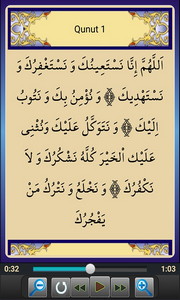 Qunut 1
اَللَّهُمَّ إِنَّا نَسْتَعِينُكَ وَ نَسْتَغْفِرُكَ وَ
نَسْتَهْدِيكَ ﴿﴾ وَ نُؤْمِنُ بِكَ وَ نَتُوبُ
إِلَيْكَ ﴿﴾ وَ نَتَوَكَّلُ عَلَيْكَ وَنُثْنِى
عَلَيْك الْخَيْرَ كُلَّهُ نَشْكُرُكَ وَ لاَ
نَكْفُرُكَ ﴿﴾ وَ نَخْلَعُ وَ نَتْرُكُ مَنْ
يَفْجُرُكَ
0:32
1:03